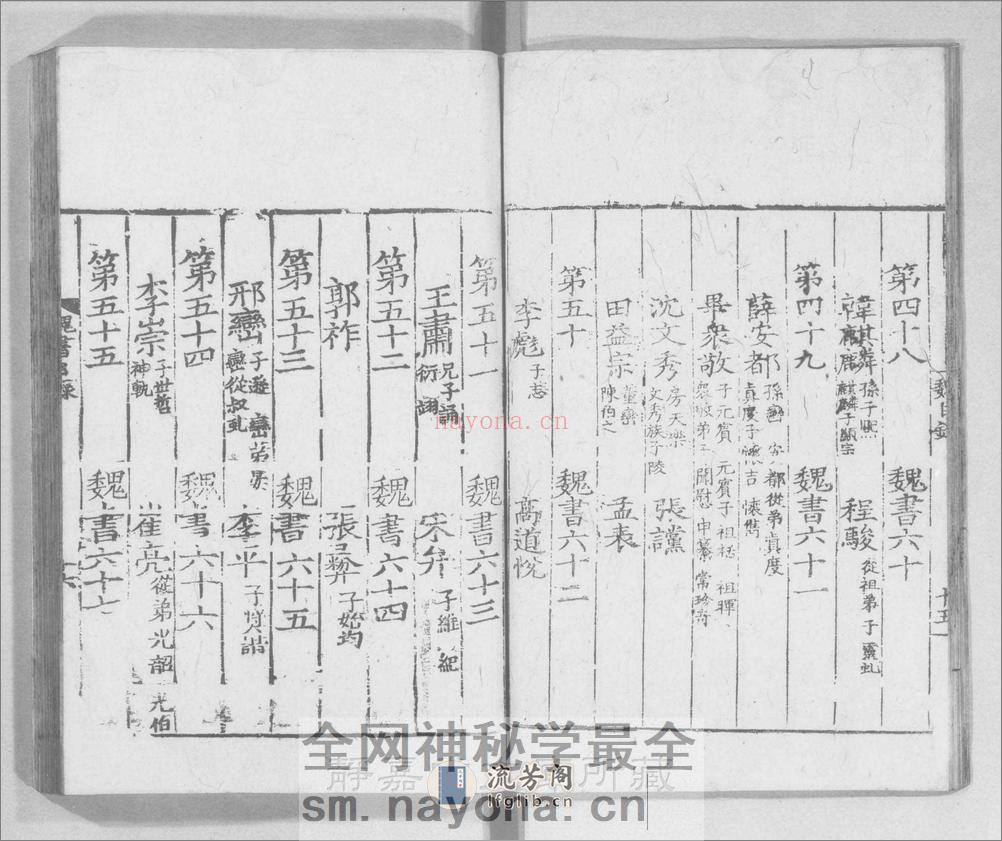 第四十八 魏書六十
韓麒麟 孫子熙 麒麟子顯宗 程駿 從祖弟子靈虬
第四十九 魏書六十一
薛安都 孫 安都從弟真度 真度子懷吉 懷儁
畢衆敬 子元賓 元賓子祖 祖暉 衆敬弟子聞慰 申纂 常珍奇
沈文秀 房天樂 文秀族子陵 張讜
田益宗 董巒 陳伯之 孟表
第五十 魏書六十二
李彪 子志 高道悅
第五十一 魏書六十三
王肅 兄子誦 衍 翊 宋弁 子維 紀
第五十二 魏書六十四
郭祚 張彝 子始均
第五十三 魏書六十五
邢巒 子遜 巒弟晏 巒從叔虬 李平 子奬 諧
第五十四 魏書六十六
李崇 子世哲 神軌 崔亮 從弟光韶 光伯
第五十五 魏書六十七
魏書目錄
魏目錄
十五
nayona.cn
全网神秘学最全
流芳阁
lfglib.cn
sm.nayona.cn